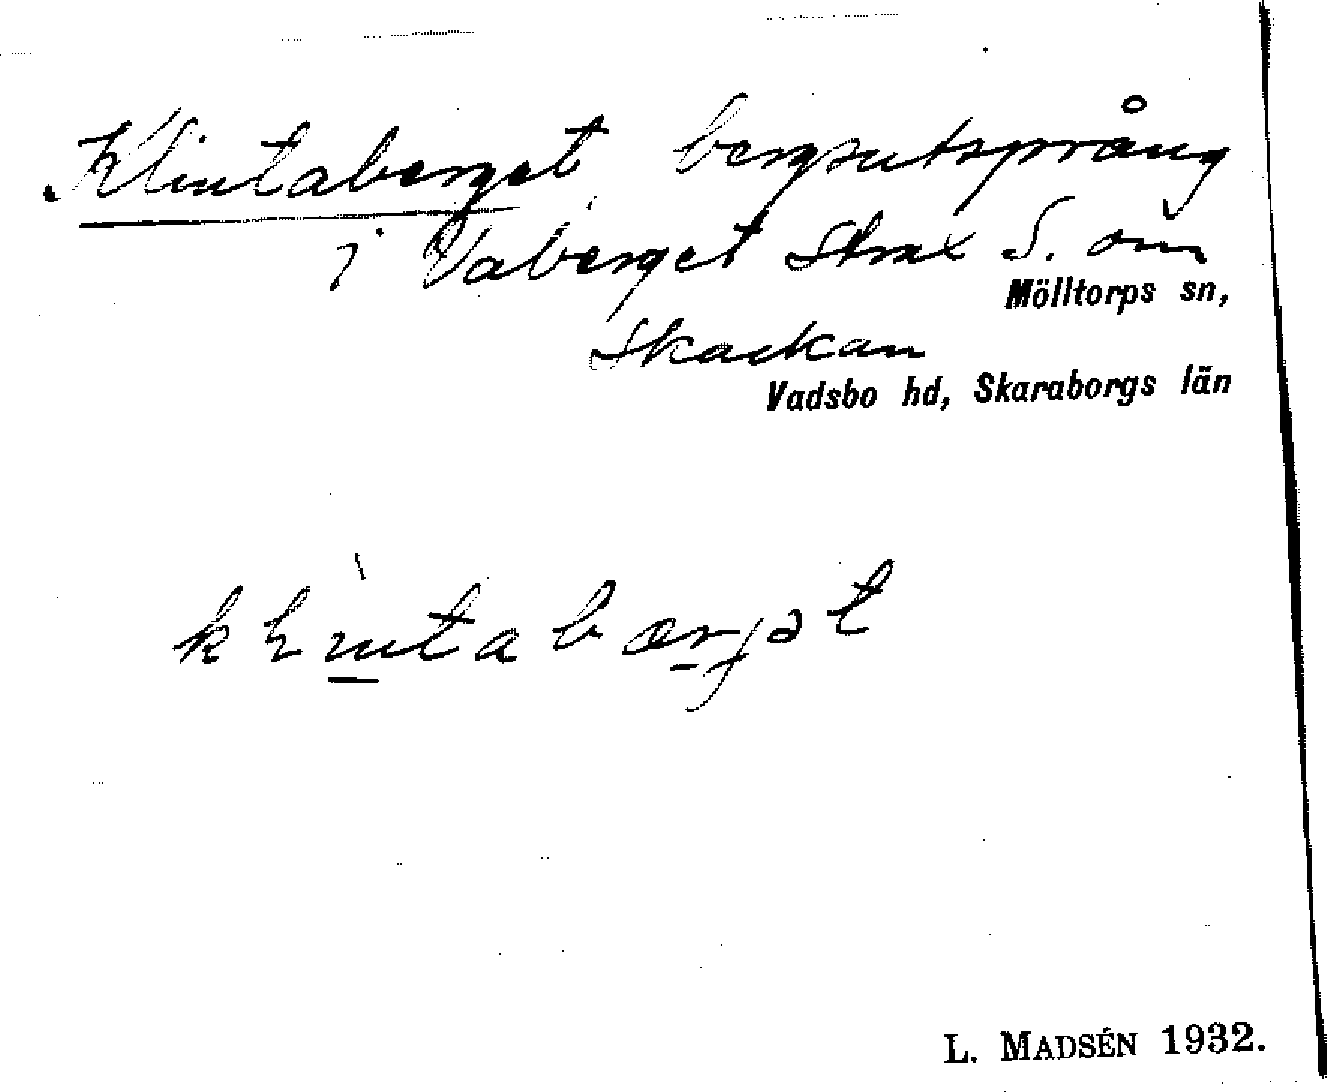 Klintaberget, bergsutsprång
i Vaberget strax S. om
Mölltorps sn,
Skackan
Vadsbo hd, Skaraborgs län
L. MADSÉN 1932.